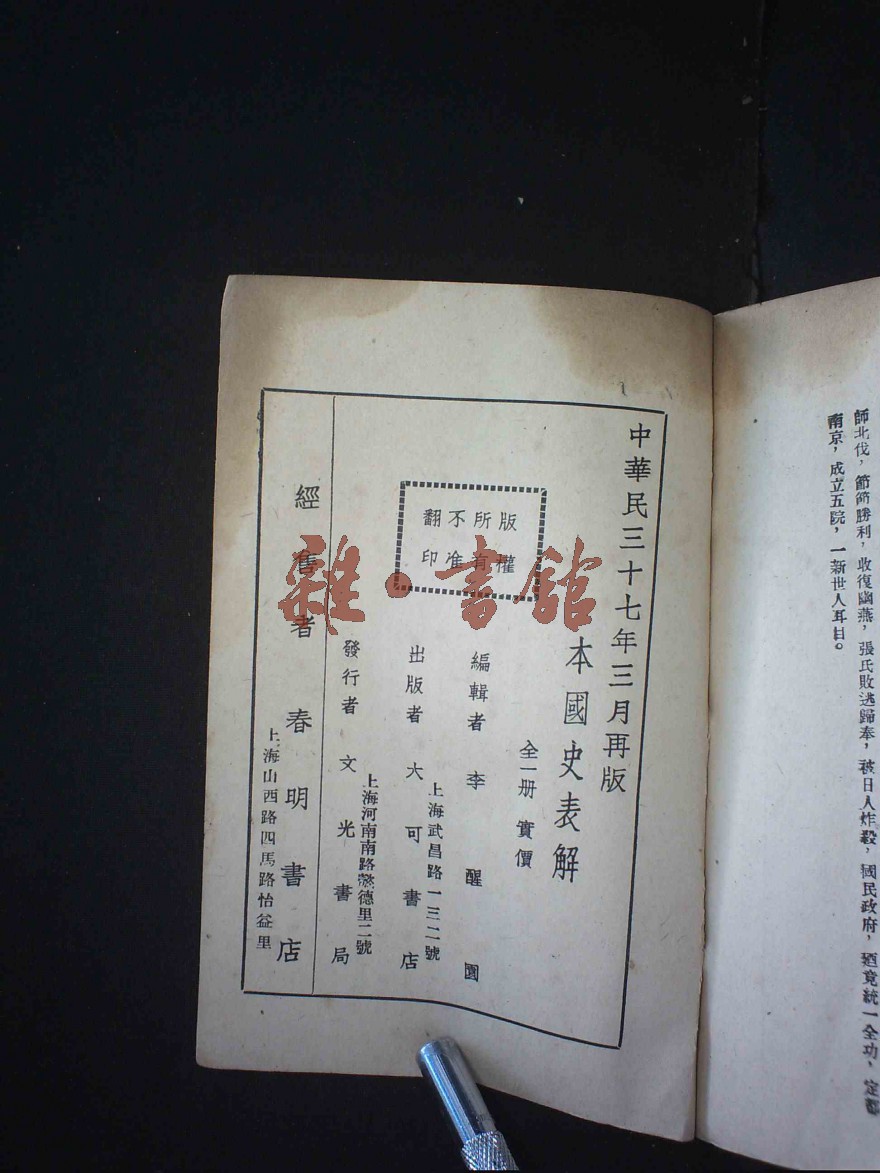 師北伐，節節勝利，收復幽燕，張氏敗逃歸奉，被日人炸殺，國民政府，迺竟統一全功，定都
南京，成立五院，一新世人耳目。
中華民三十七年三月再版
本國史表解
全一册 實價
版權所有
不准翻印
編輯者 李醒園
出版者 大可書店
上海武昌路一三二號
發行者 文光書局
上海河南南路德里二號
經售者 春明書店
上海山西路四馬路怡益里
雜·書館